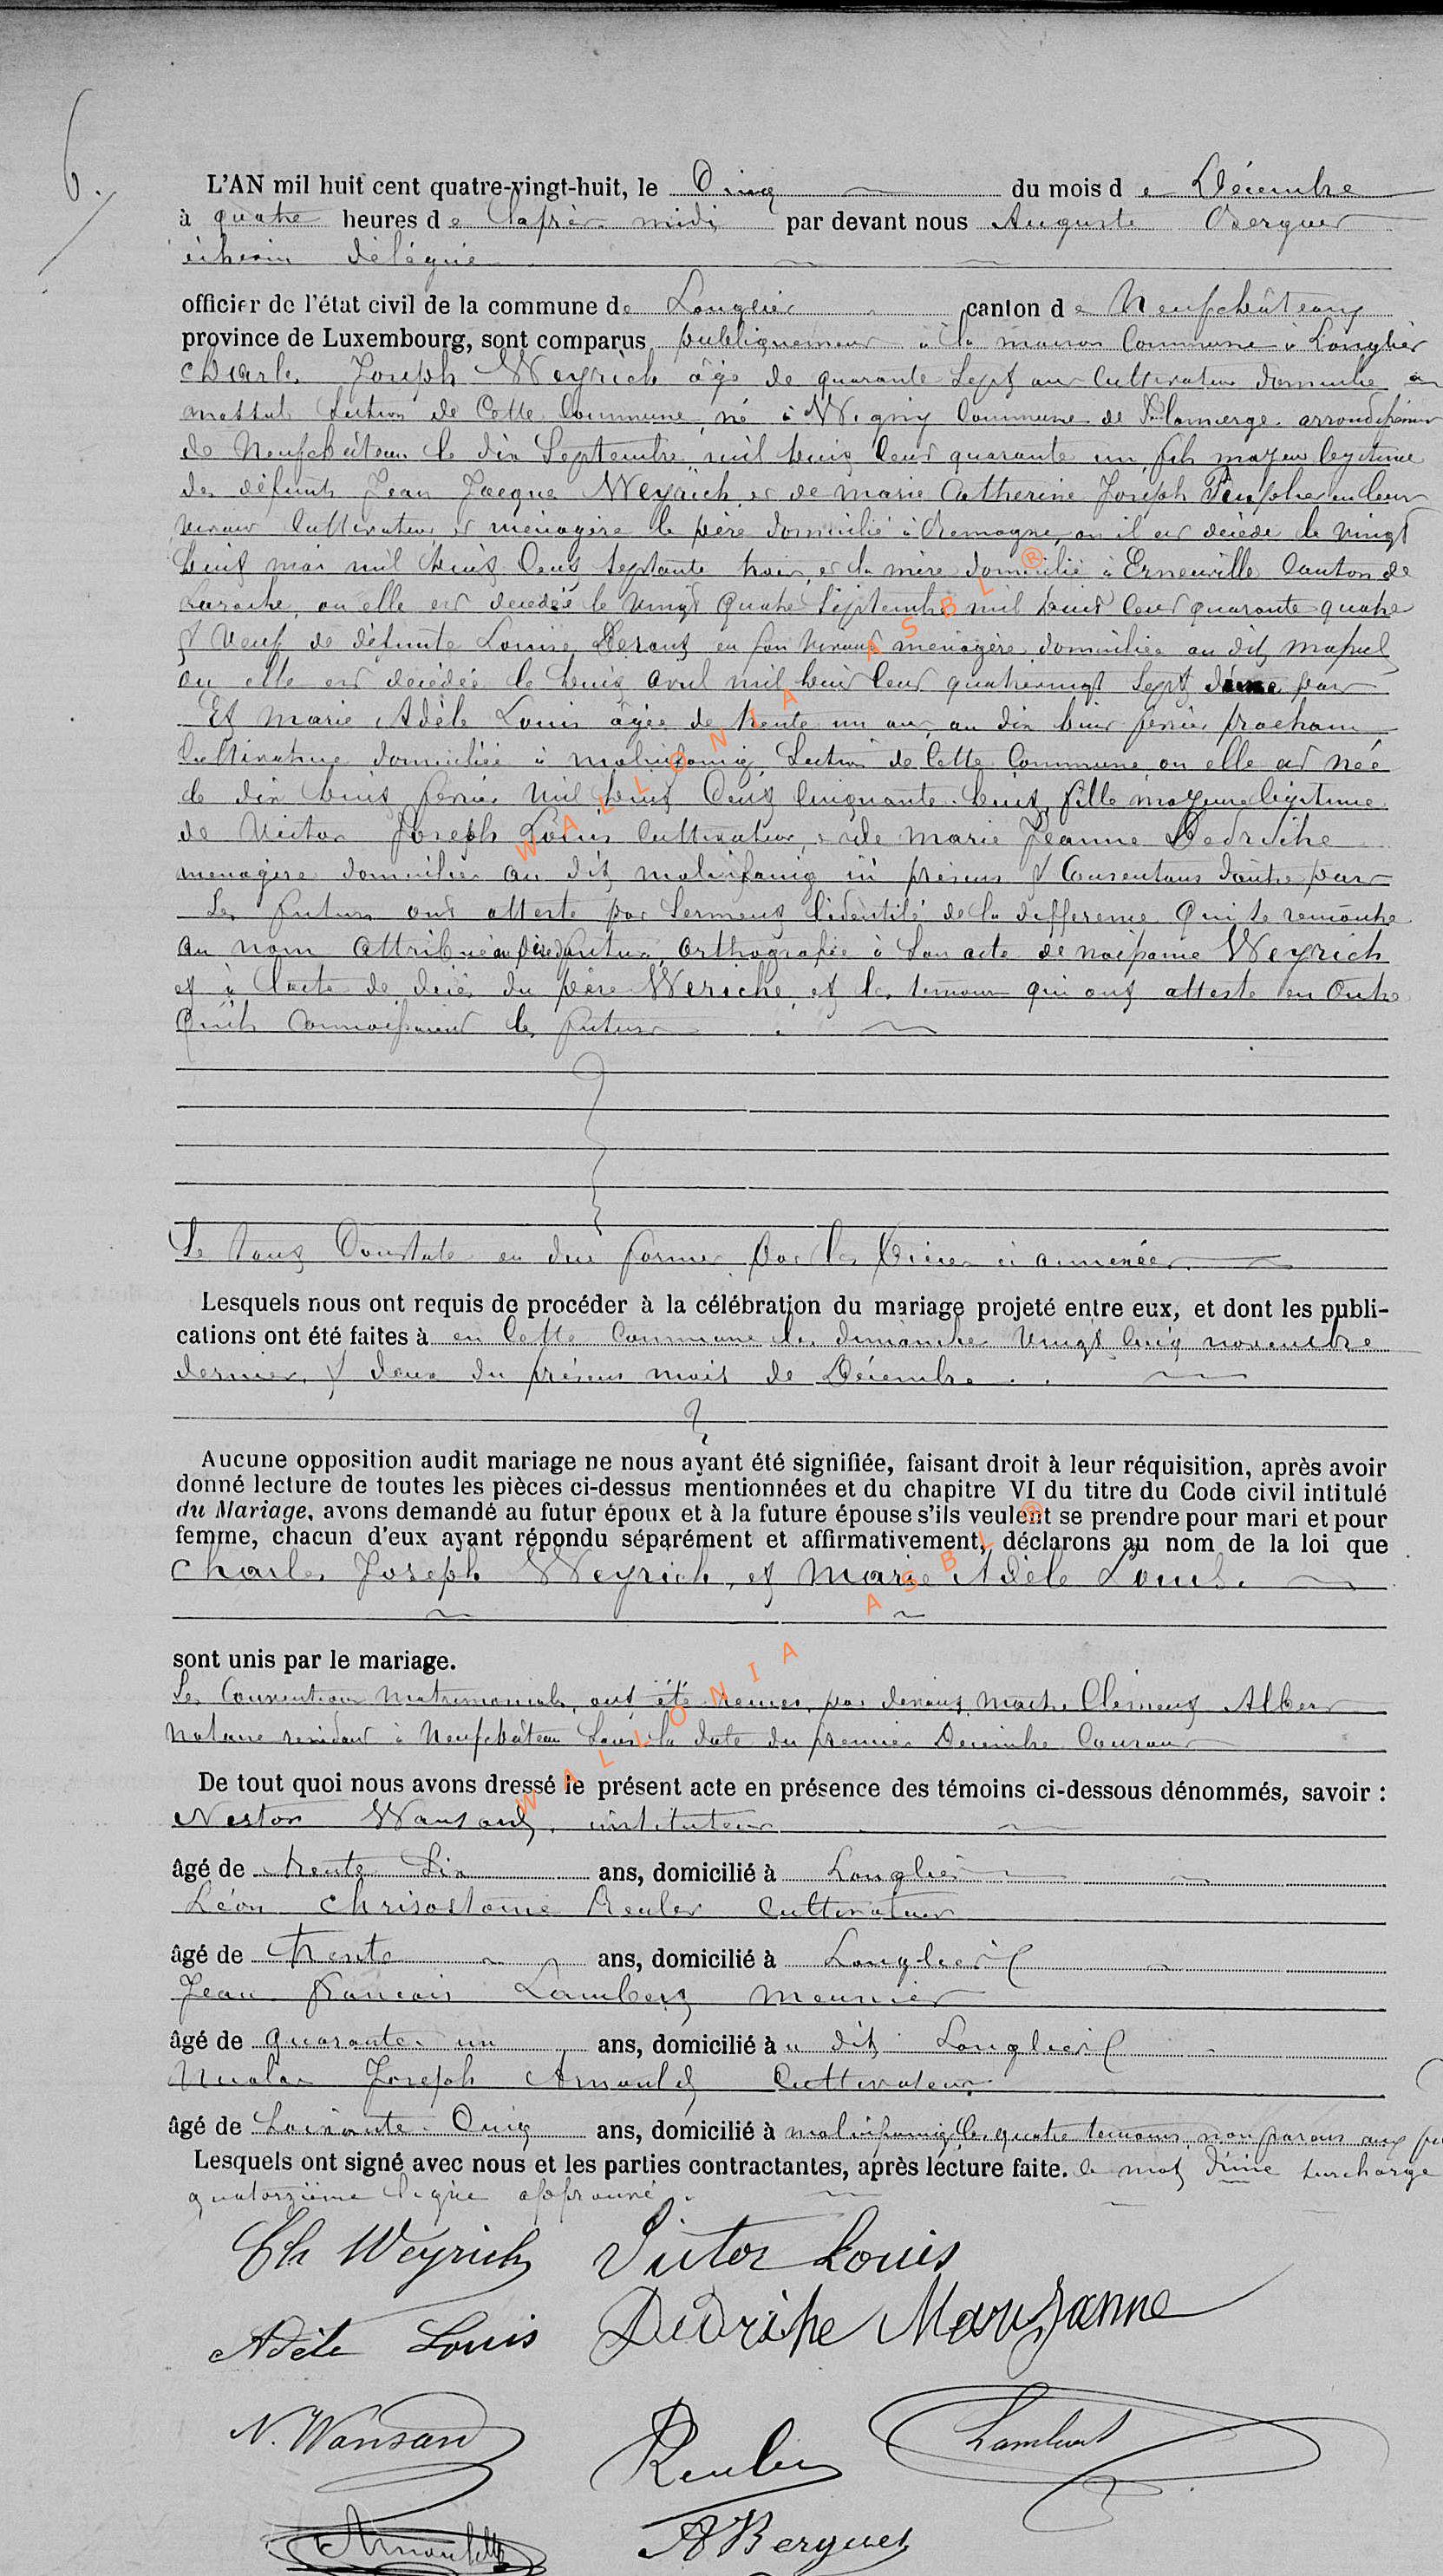 6.
L'AN mil huit cent quatre-vingt-huit, le Cinq du mois de Décembre
à quatre heures de l'après-midi par devant nous Auguste Berguet
échevin délégué
officier de l'état civil de la commune de Longlier canton de Neufchâteau
province de Luxembourg, sont comparus publiquement à la maison Commune à Longlier
Charles Joseph Weyrich âgé de quarante Sept ans Cultivateur domicilié au
Massul Section de Cette Commune, né à Wigny Commune de arrondissement
de Neufchâteau le dix Septembre mil huit Cent quarante un, fils majeur légitime
des défunts Jean Jacque Weyrich et de Marie Catherine Joseph en leur
vivant Cultivateur et ménagère le père domicilié à Remagne, où il est décédé le vingt
huit mai mil huit Cent Septante trois, et la mère domiciliée à Erneuville Canton de
Laroche, où elle est décédée le vingt quatre Septembre mil huit Cent quarante quatre
& Veuf de défunte Louise en son vivant ménagère domiciliée au dit Massul
où elle est décédée le huit avril mil huit Cent quatrevingt Sept d'une part
Et Marie Adèle Louis âgée de trente un ans, au dix huit février prochain
Cultivatrice domiciliée à Molinfaing, Section de Cette Commune, où elle est née
le dix huit février mil huit Cent Cinquante-huit, fille majeure légitime
de Victor Joseph Louis Cultivateur, et de Marie Jeanne Dedriche
ménagère domiciliés au dit Molinfaing ici présens & Consentans d'autre part
Les futurs ont attesté par Serment l'identité de la différence Qui se remontre
au nom attribué au père du futur, orthografié à Son acte de naissance Weyrich
et à l'acte de décès du père Weriche, et les temoins qui ont attesté en Outre
Qu'ils Connaissaient les futurs
Le tout Constaté en due forme par les pièces ci annexées
Lesquels nous ont requis de procéder à la célébration du mariage projeté entre eux, et dont les publi-
cations ont été faites à en Cette Commune les dimanches Vingt Cinq novembre
dernier, & deux du présent mois de Décembre.
Aucune opposition audit mariage ne nous ayant été signifiée, faisant droit à leur réquisition, après avoir
donné lecture de toutes les pièces ci-dessus mentionnées et du chapitre VI du titre du Code civil intitulé
du Mariage, avons demandé au futur époux et à la future épouse s'ils veulent se prendre pour mari et pour
femme, chacun d'eux ayant répondu séparément et affirmativement, déclarons au nom de la loi que
Charles Joseph Weyrich, et Marie Adèle Louis.
sont unis par le mariage.
Les Conventions Matrimoniales, ont été par devant Maître Clément Albert
Notaire résidant à Neufchâteau Sous la date du premier Décembre Courant
De tout quoi nous avons dressé le présent acte en présence des témoins ci-dessous dénommés, savoir :
Nestor Wansart, instituteur
âgé de trente Six ans, domicilié à Longlier
Léon Chrisostome Reuler Cultivateur
âgé de trente ans, domicilié à Longlier
Jean François Lambert meunier
âgé de quarante un ans, domicilié à u dit Longlier
Nicolas Joseph Arnould Cultivateur
âgé de Soixante Cinq ans, domicilié à Molinfaing les quatre temoins, non parens aux
Lesquels ont signé avec nous et les parties contractantes, après lecture faite. le mot d'une surchargé
quatorzième ligne approuvé.
Ch Weyrich Victor Louis
Adèle Louis Dedriche Marie Janne
N. Wansart Reuler Lambert
Arnould ABerguet
WALLONIA ASBL ®
WALLONIA ASBL ®